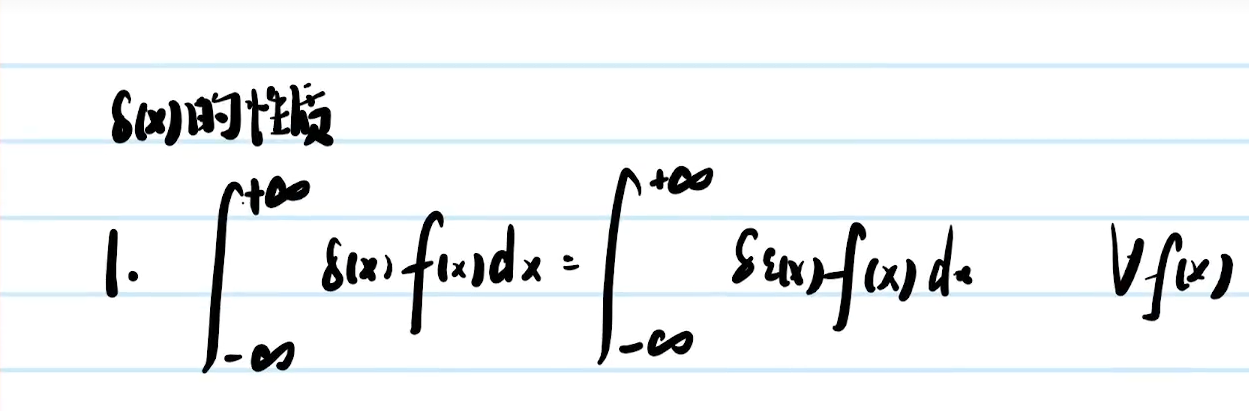 δ(x)的性质
1. ∫_{-∞}^{+∞} δ(x)f(x)dx = ∫_{-∞}^{+∞} δ_ε(x)f(x)dx ∀f(x)